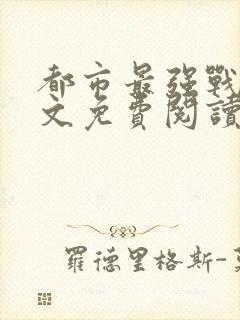 都市最强戰
文免費閱讀
羅德里格斯-